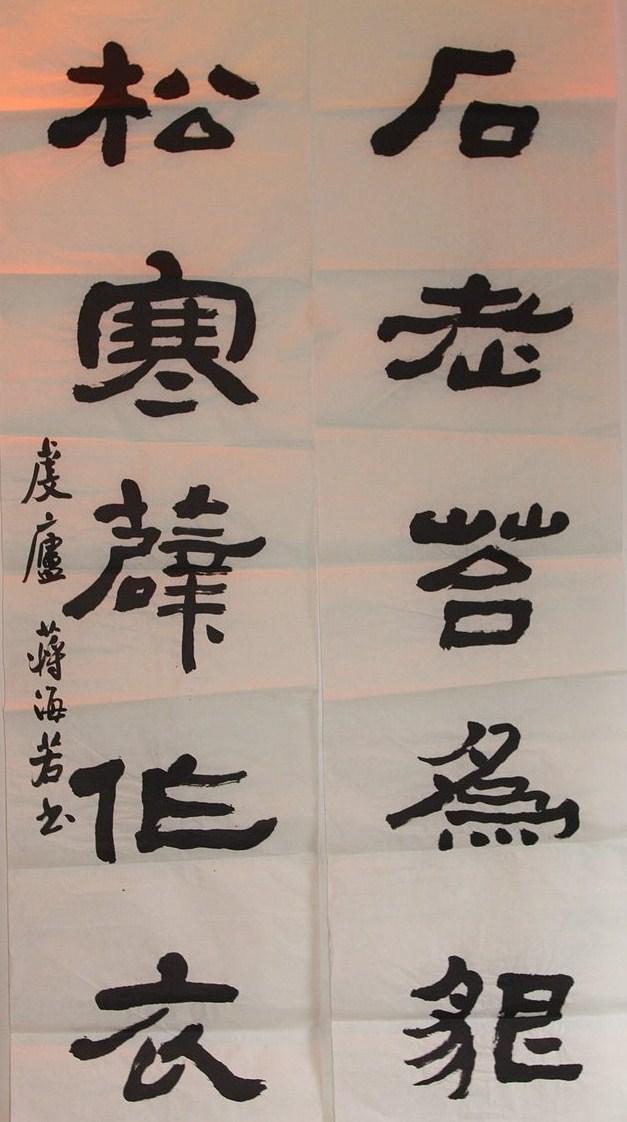 石老苔為貌
松寒薜作衣
虔廬 蔣海若书